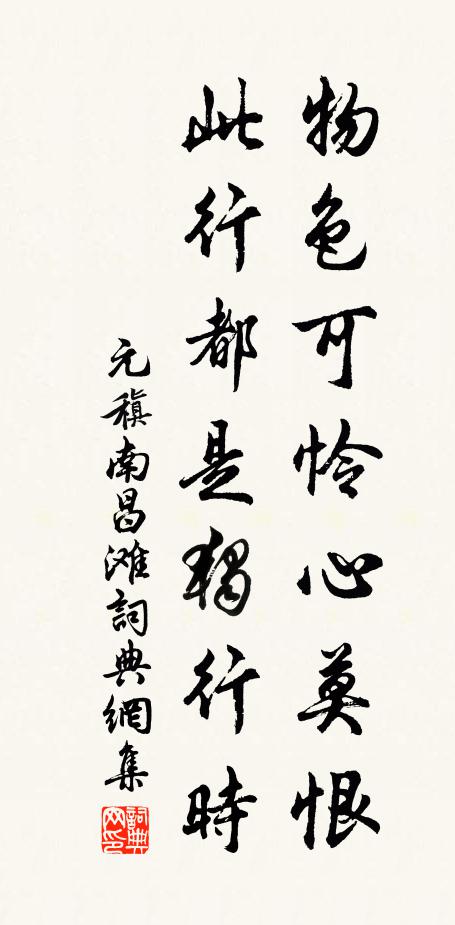 物色可怜心莫恨
此行都是獨行時
元稹南昌滩詞典網集
詞典网印